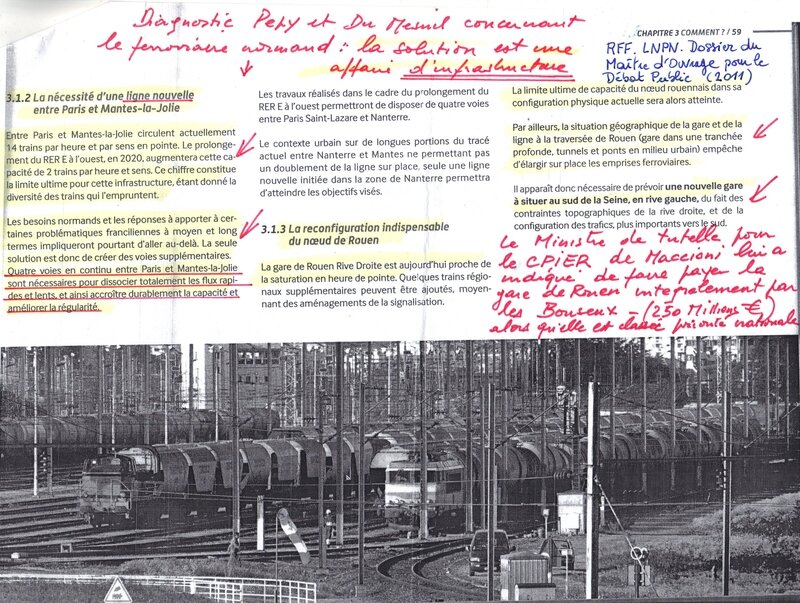 Diagnostic Pepy et Du Mesnil concernant
le ferroviaire normand : la solution est une
affaire d'infrastructure
CHAPITRE 3 COMMENT ? / 59
RFF. LNPN. Dossier du
Maître d'Ouvrage pour le
Débat Public (2011)
3.1.2 La nécessité d'une ligne nouvelle
entre Paris et Mantes-la-Jolie
Entre Paris et Mantes-la-Jolie circulent actuellement
14 trains par heure et par sens en pointe. Le prolonge-
ment du RER E à l'ouest, en 2020, augmentera cette ca-
pacité de 2 trains par heure et sens. Ce chiffre constitue
la limite ultime pour cette infrastructure, étant donné la
diversité des trains qui l'empruntent.
Les besoins normands et les réponses à apporter à cer-
taines problématiques franciliennes à moyen et long
termes impliqueront pourtant d'aller au-delà. La seule
solution est donc de créer des voies supplémentaires.
Quatre voies en continu entre Paris et Mantes-la-Jolie
sont nécessaires pour dissocier totalement les flux rapi-
des et lents, et ainsi accroître durablement la capacité et
améliorer la régularité.
Les travaux réalisés dans le cadre du prolongement du
RER E à l'ouest permettront de disposer de quatre voies
entre Paris Saint-Lazare et Nanterre.
Le contexte urbain sur de longues portions du tracé
actuel entre Nanterre et Mantes ne permettant pas
un doublement de la ligne sur place, seule une ligne
nouvelle initiée dans la zone de Nanterre permettra
d'atteindre les objectifs visés.
3.1.3 La reconfiguration indispensable
du nœud de Rouen
La gare de Rouen Rive Droite est aujourd'hui proche de
la saturation en heure de pointe. Quelques trains régio-
naux supplémentaires peuvent être ajoutés, moyen-
nant des aménagements de la signalisation.
La limite ultime de capacité du nœud rouennais dans sa
configuration physique actuelle sera alors atteinte.
Par ailleurs, la situation géographique de la gare et de la
ligne à la traversée de Rouen (gare dans une tranchée
profonde, tunnels et ponts en milieu urbain) empêche
d'élargir sur place les emprises ferroviaires.
Il apparaît donc nécessaire de prévoir une nouvelle gare
à situer au sud de la Seine, en rive gauche, du fait des
contraintes topographiques de la rive droite, et de la
configuration des trafics, plus importants vers le sud.
Le Ministre de tutelle pour
le CPIER de Maccioni lui a
indiqué de faire payer la
gare de Rouen intégralement par
les Bouseux - (250 Millions €)
alors qu'elle est classée priorité nationale